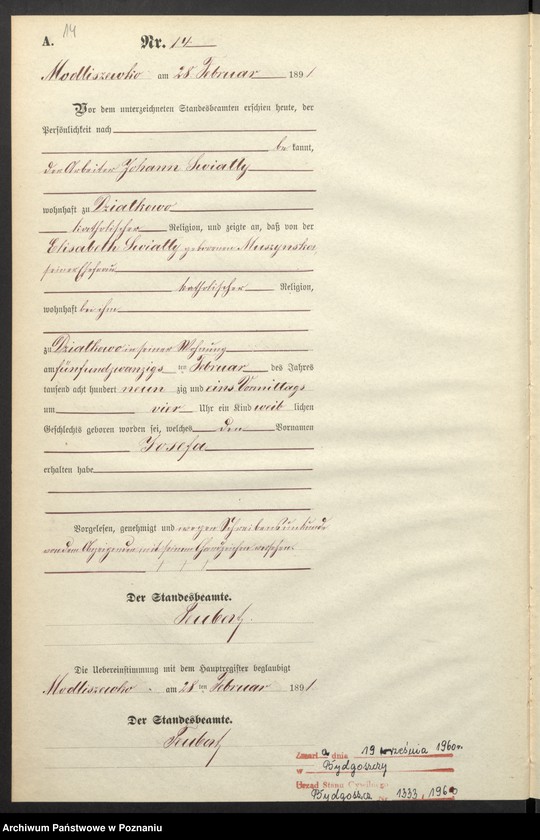 14
A.
Nr. 14
Modliszewko am 28 Februar 1891
Vor dem unterzeichneten Standesbeamten erschien heute, der
Persönlichkeit nach
be kannt,
der Arbeiter Johann Swially
wohnhaft zu Dzialkowo
katholischer Religion, und zeigte an, daß von der
Elisabeth Swially geborenen Muszynska
seiner Ehefrau
katholischer Religion,
wohnhaft bei ihm
zu Dzialkowo in seiner Wohnung
am fünfundzwanzigs ten Februar des Jahres
tausend acht hundert neun zig und eins Vormittags
um vier Uhr ein Kind weib lichen
Geschlechts geboren worden sei, welches den Vornamen
Josefa
erhalten habe
Vorgelesen, genehmigt und wegen Schreibensunkunde
von dem Anzeigenden mit seinem Handzeichen versehen.
† † †
Der Standesbeamte.
Die Uebereinstimmung mit dem Hauptregister beglaubigt
Modliszewko am 28 ten Februar 1891
Der Standesbeamte.
Zmarł a dnia 19 września 1960r.
w Bydgoszczy
Urząd Stanu Cywilnego
Bydgoszcz Nr 1333, 1960
Archiwum Państwowe w Poznaniu